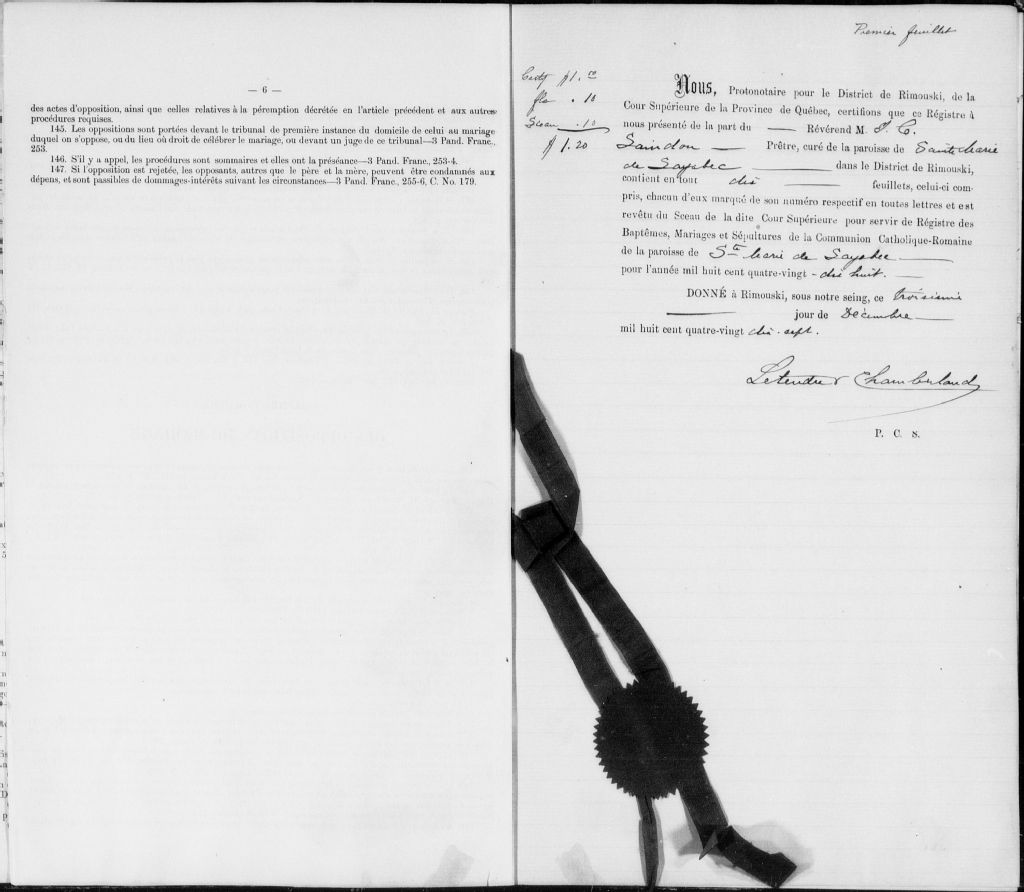 — 6 —
des actes d'opposition, ainsi que celles relatives à la péremption décrétée en l'article précédent et aux autres
procédures requises.
145. Les oppositions sont portées devant le tribunal de première instance du domicile de celui au mariage
duquel on s'oppose, ou du lieu où droit de célébrer le mariage, ou devant un juge de ce tribunal—3 Pand. Franc.,
253.
146. S'il y a appel, les procédures sont sommaires et elles ont la préséance—3 Pand. Franc., 253-4.
147. Si l'opposition est rejetée, les opposants, autres que le père et la mère, peuvent être condamnés aux
dépens, et sont passibles de dommages-intérêts suivant les circonstances—3 Pand. Franc., 255-6, C. No. 179.
Premier feuillet
$1.00
.10
Sceau .10
$1.20
Nous, Protonotaire pour le District de Rimouski, de la
Cour Supérieure de la Province de Québec, certifions que ce Régistre à
nous présenté de la part du — Révérend M. J. C.
Saindon — Prêtre, curé de la paroisse de Sainte Marie
de Sayabec — dans le District de Rimouski,
contient en tout dix — feuillets, celui-ci com-
pris, chacun d'eux marqué de son numéro respectif en toutes lettres et est
revêtu du Sceau de la dite Cour Supérieure pour servir de Régistre des
Baptêmes, Mariages et Sépultures de la Communion Catholique-Romaine
de la paroisse de Ste Marie de Sayabec —
pour l'année mil huit cent quatre-vingt - dix huit. —
DONNÉ à Rimouski, sous notre seing, ce troisième
— jour de Décembre —
mil huit cent quatre-vingt dix-sept.
Letendre & Chamberland
P. C. S.